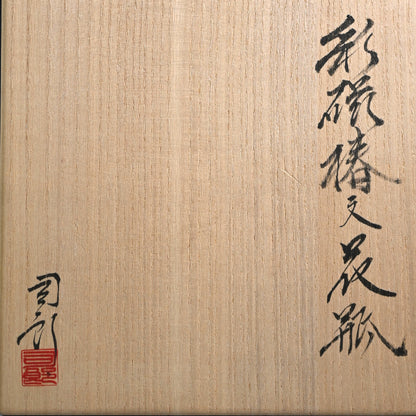 彩磁椿文花瓶
司郎